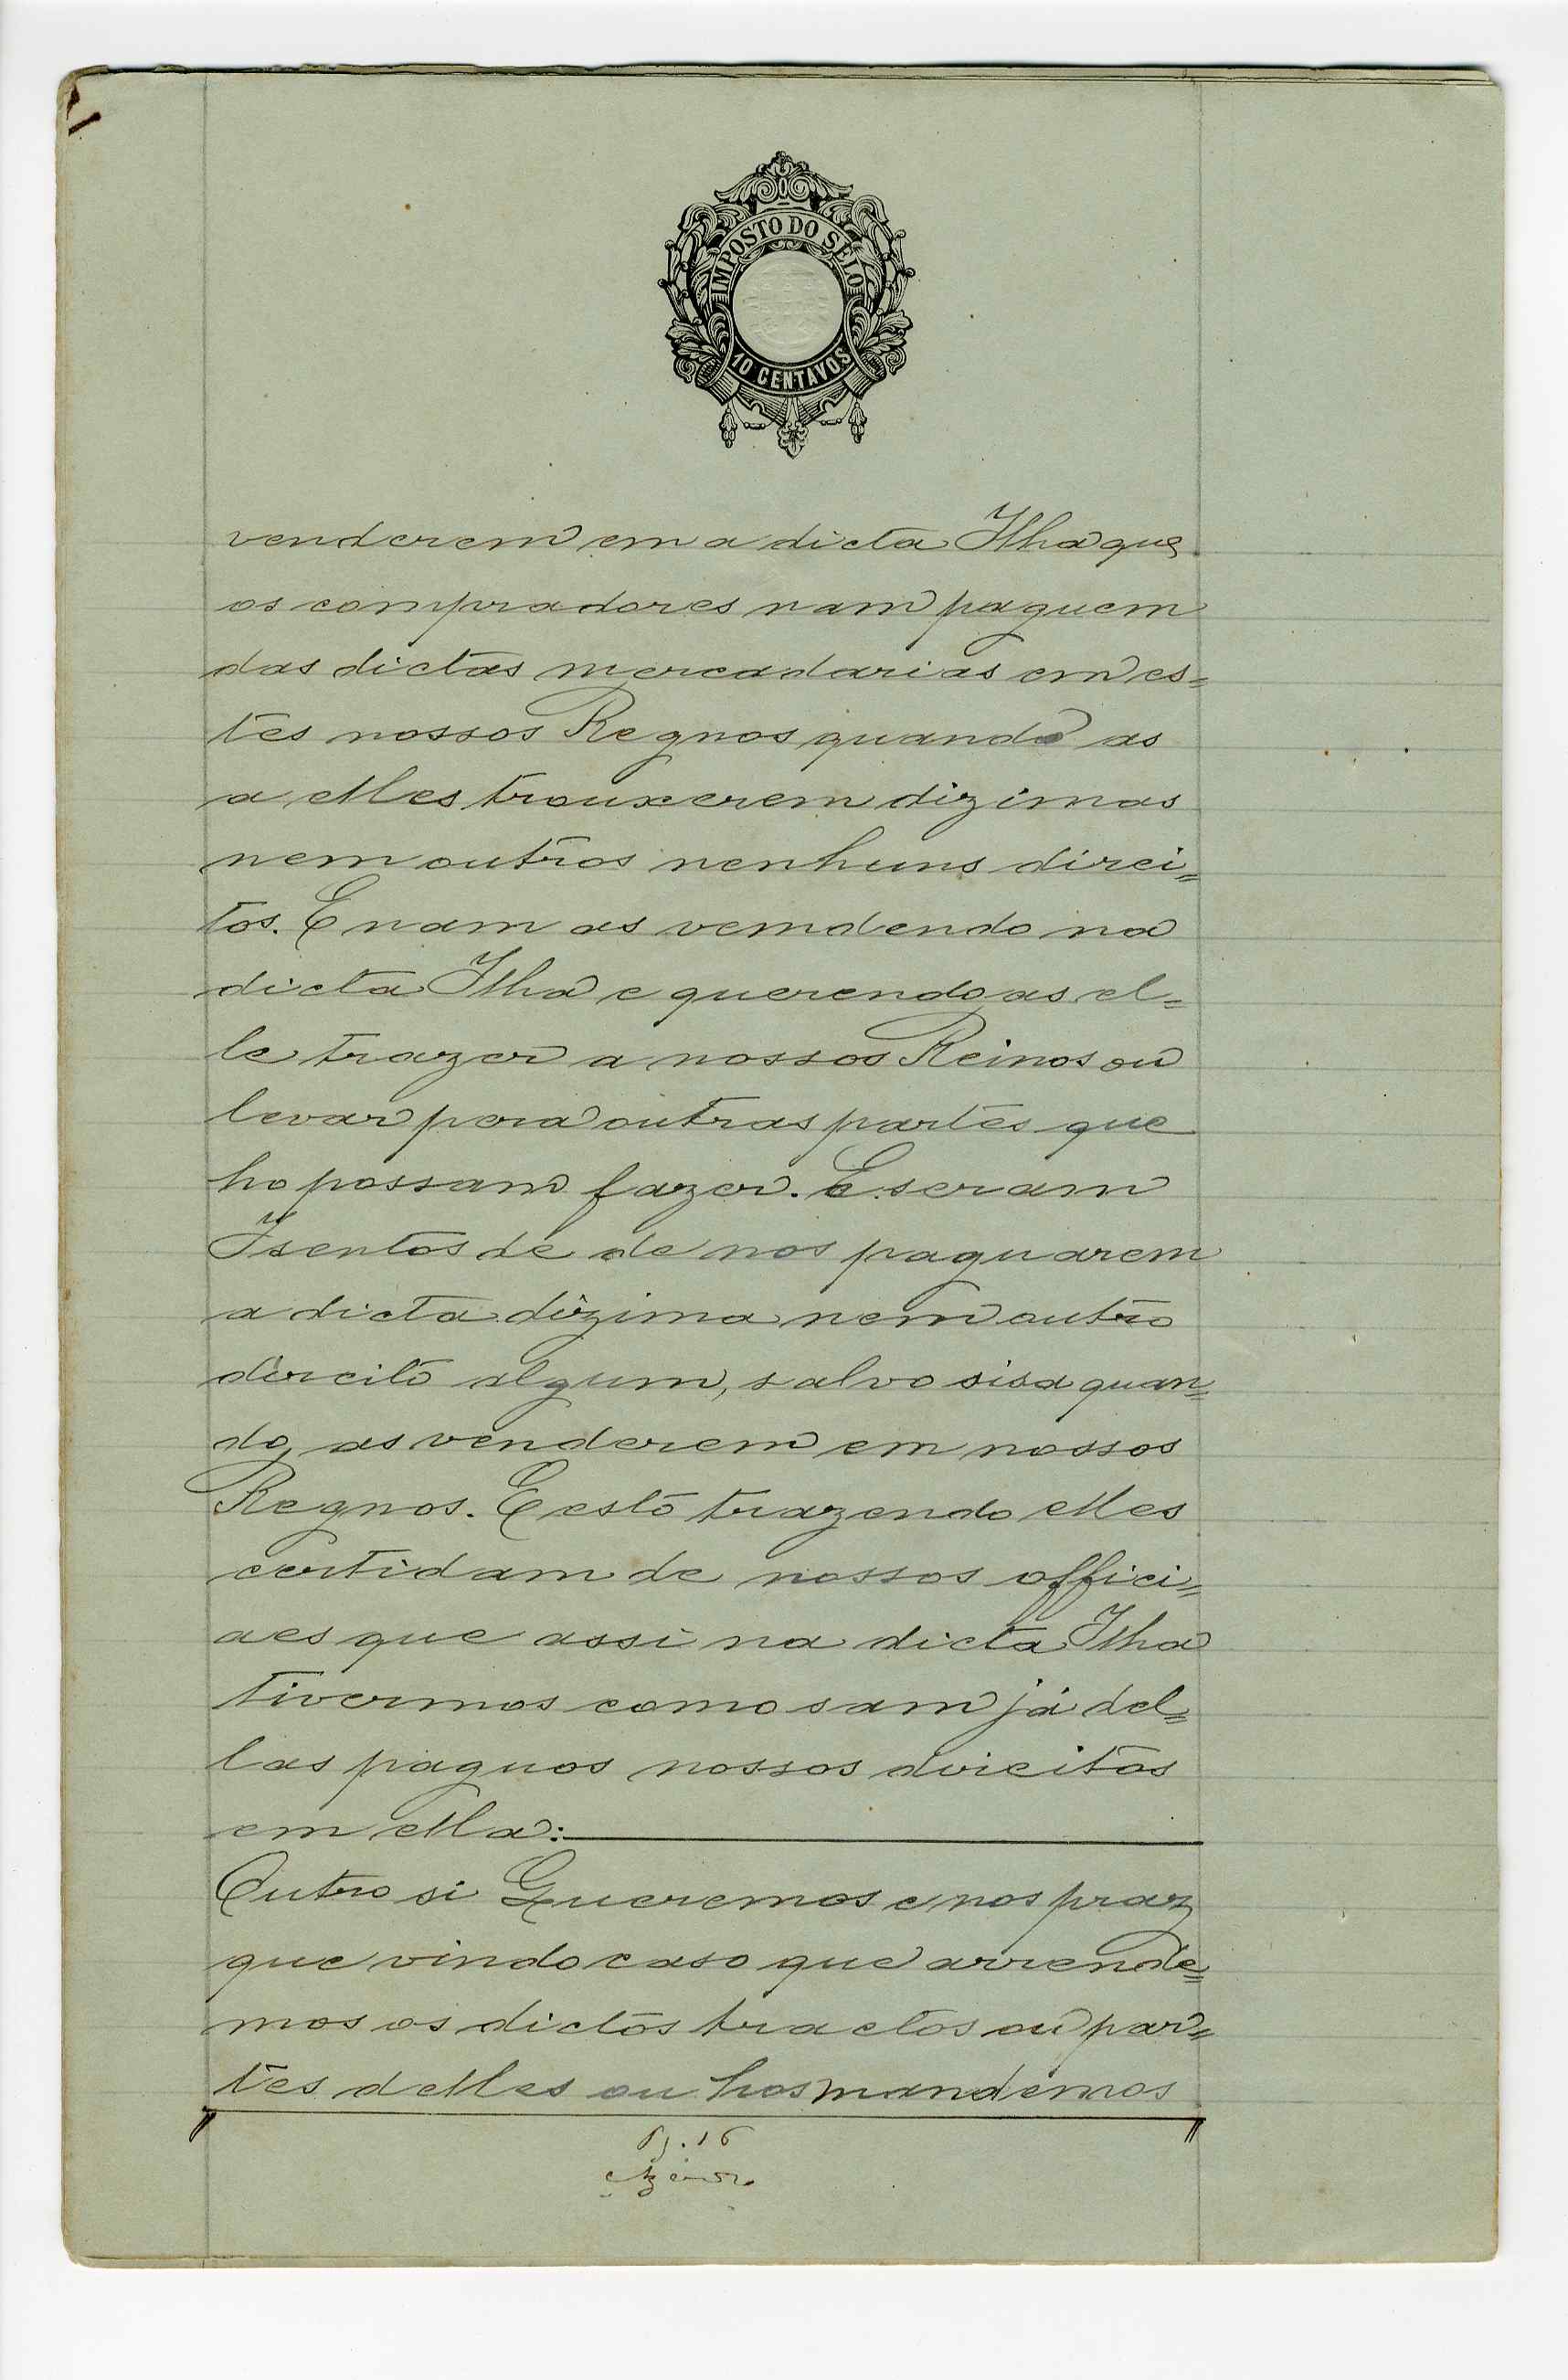 IMPOSTO DO SELO
10 CENTAVOS
venderem em a dicta Ilha que
os compradores nam paguem
das dictas mercadarias em es=
tes nossos Regnos quando as
a elles trouxerem dizimas
nem outros nenhuns direi=
tos. E nam as vemdendo na
dicta Ilha e querendo as el=
le trazer a nossos Reinos ou
levar pera outras partes que
ho possam fazer. E seram
Isentos de de nos paguarem
a dicta dizima nem outro
direito algum, salvo sisa quan=
do as venderem em nossos
Regnos. E esto trazendo elles
certidam de nossos offici=
aes que assi na dicta Ilha
tivermos como sam já del=
las paguos nossos direitos
em ella:
Outro si Queremos e nos praz
que vindo caso que arrende=
mos os dictos tractos ou par=
tes delles ou hos mandemos
16